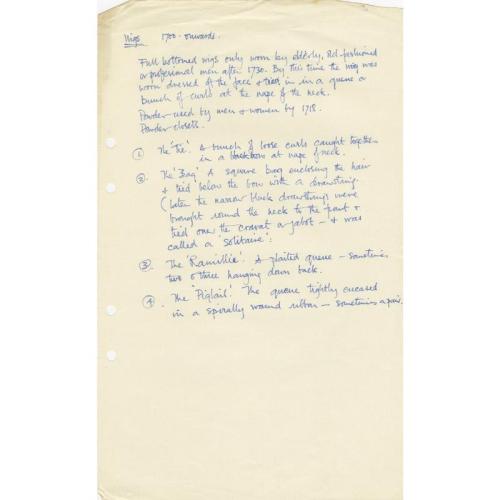 Wigs 1700 - onwards.
Full bottomed wigs only worn by elderly, old-fashioned
or professional men after 1730. By this time the wig was
worn dressed off the face & tied in in a queue or
bunch of curls at the nape of the neck.
Powder - used by men & women by 1718.
Powder closets.
① The 'Tie'. A bunch of loose curls caught together
in a black bow at nape of neck.
② The 'Bag' A square bag enclosing the hair
& tied below the bow with a drawstring.
(Later the narrow black drawstrings were
brought round the neck to the front &
tied over the cravat or jabot - & was
called a 'solitaire'.
③. The 'Ramillie'. A plaited queue - sometimes
two or three hanging down back.
④. The "Pigtail'. The queue tightly encased
in a spirally wound ribbon - sometimes a pair.